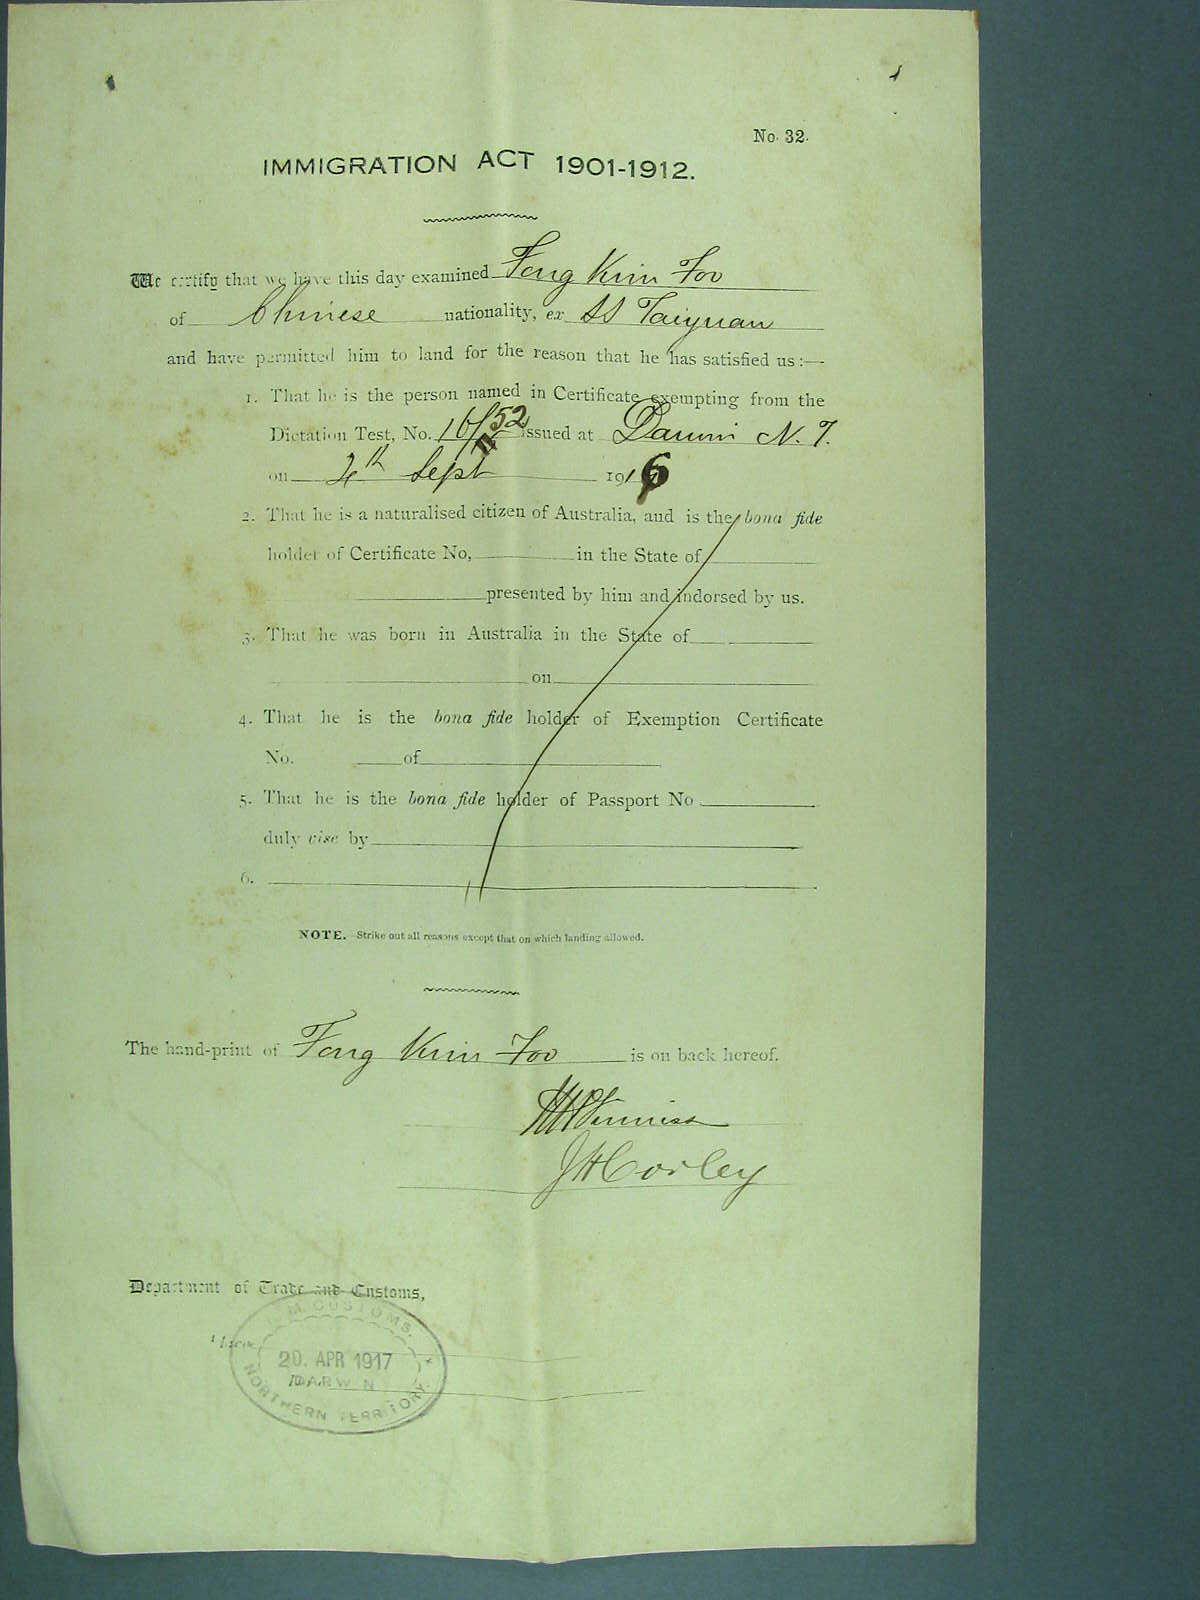 No. 32.
IMMIGRATION ACT 1901-1912.
We certify that we have this day examined Fong Kim Foo
of Chinese nationality, ex SS Taiyuan
and have permitted him to land for the reason that he has satisfied us :—
1. That he is the person named in Certificate exempting from the
Dictation Test, No. 16/52 issued at Darwin N. T.
on 4th Sept 1916
2. That he is a naturalised citizen of Australia, and is the bona fide
holder of Certificate No, in the State of
presented by him and indorsed by us.
3. That he was born in Australia in the State of
on
4. That he is the bona fide holder of Exemption Certificate
No. of
5. That he is the bona fide holder of Passport No
duly vise by
6.
NOTE. Strike out all reasons except that on which landing allowed.
The hand-print of Fong Kim Foo is on back hereof.
J H Corley
Department of Trade and Customs,
Place
H. M. CUSTOMS.
20. APR 1917
DARWIN
NORTHERN TERRITORY